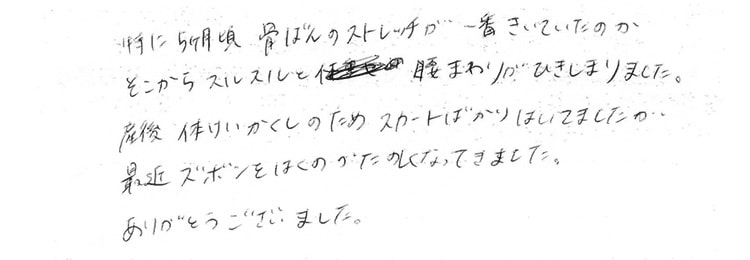 特に5ヶ月頃 骨ばんのストレッチが一番きいていたのか
そこからスルスルと 腰まわりがひきしまりました。
産後 体けいかくしのため スカートばかりはいてましたが
最近 ズボンをはくのがたのしくなってきました。
ありがとうございました。